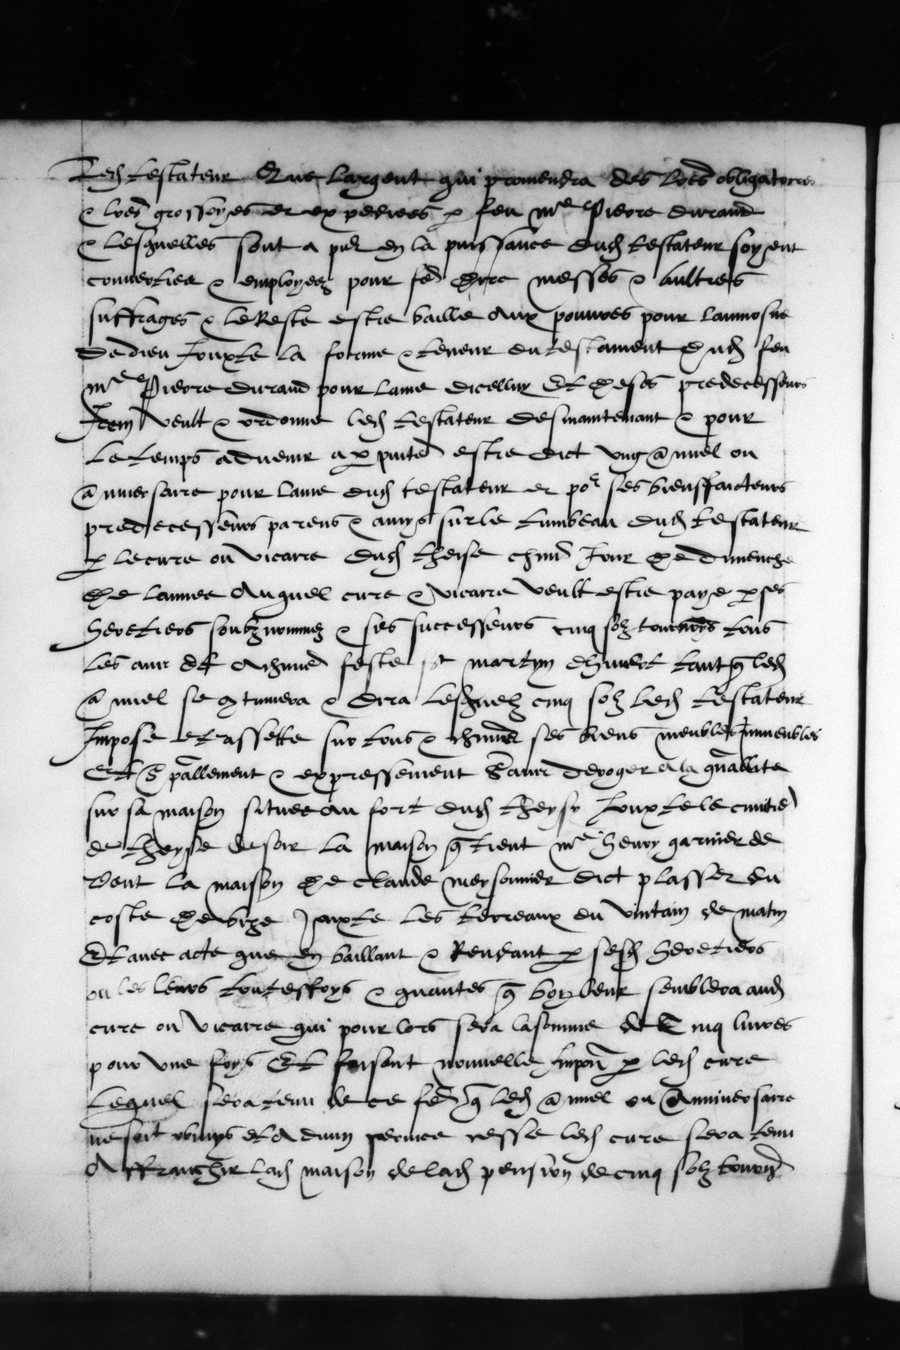 Led testateur Que largent qui proviendra des lres obligatoires
& lres grossoyes et expediees p feu me Pierre durand
& lesquelles sont a pnt en la puissance dud testateur soyent
converties & employees pour fe dire messes & aultres
suffrages & le Reste estre baille aux pouvres pour laumosne
de dieu Jouxte la forme & teneur du testament dud feu
me Pierre durand pour lame dicelluy Et de ses predecesseurs
Item veult & ordonne led testateur desmaintenant & pour
le temps advenir a ppetuite estre dict ung annuel ou
anniversaire pour lame dud testateur et por ses bienffaicteurs
predecesseurs parens & amys sur le tumbeau dud testateur
p le cure ou vicaire dud theise chun Jour de dimenche
de lannee Auquel cure & vicaire veult estre paye p ses
heretiers soubznommez & ses successeurs cinq solz tournois tous
les ans et A chune feste st martin dhivert tant q led
annuel se continuera & dira lesquelz cinq solz led testateur
Impose et assette sur tous & chuns ses biens meubles Immeubles
Et spallement & expressement sans deroger a la gnallite
sur sa maison situee au fort dud theysy Jouxte le cimitie
de theyse de soir la maison q tient me henry garnier de
vent la maison de claude meysonnier dict plasser du
coste de bize Jouxte les terreaux du vintain de matin
Et avec acte que en baillant & Rendant p sesd heretiers
ou les leurs toutesfoys & quantes q bon leur semblera aud
cure ou vicaire qui pour lors sera la somme de Cinq livres
pour une foys Et faisant nouvelle Impon p led cure
Lequel sera tenu de ce fe q led annuel ou Anniversaire
ne soit obmys et A divin service cesse led cure sera tenu
Affranchir lad maison de lad pension de cinq solz tourn